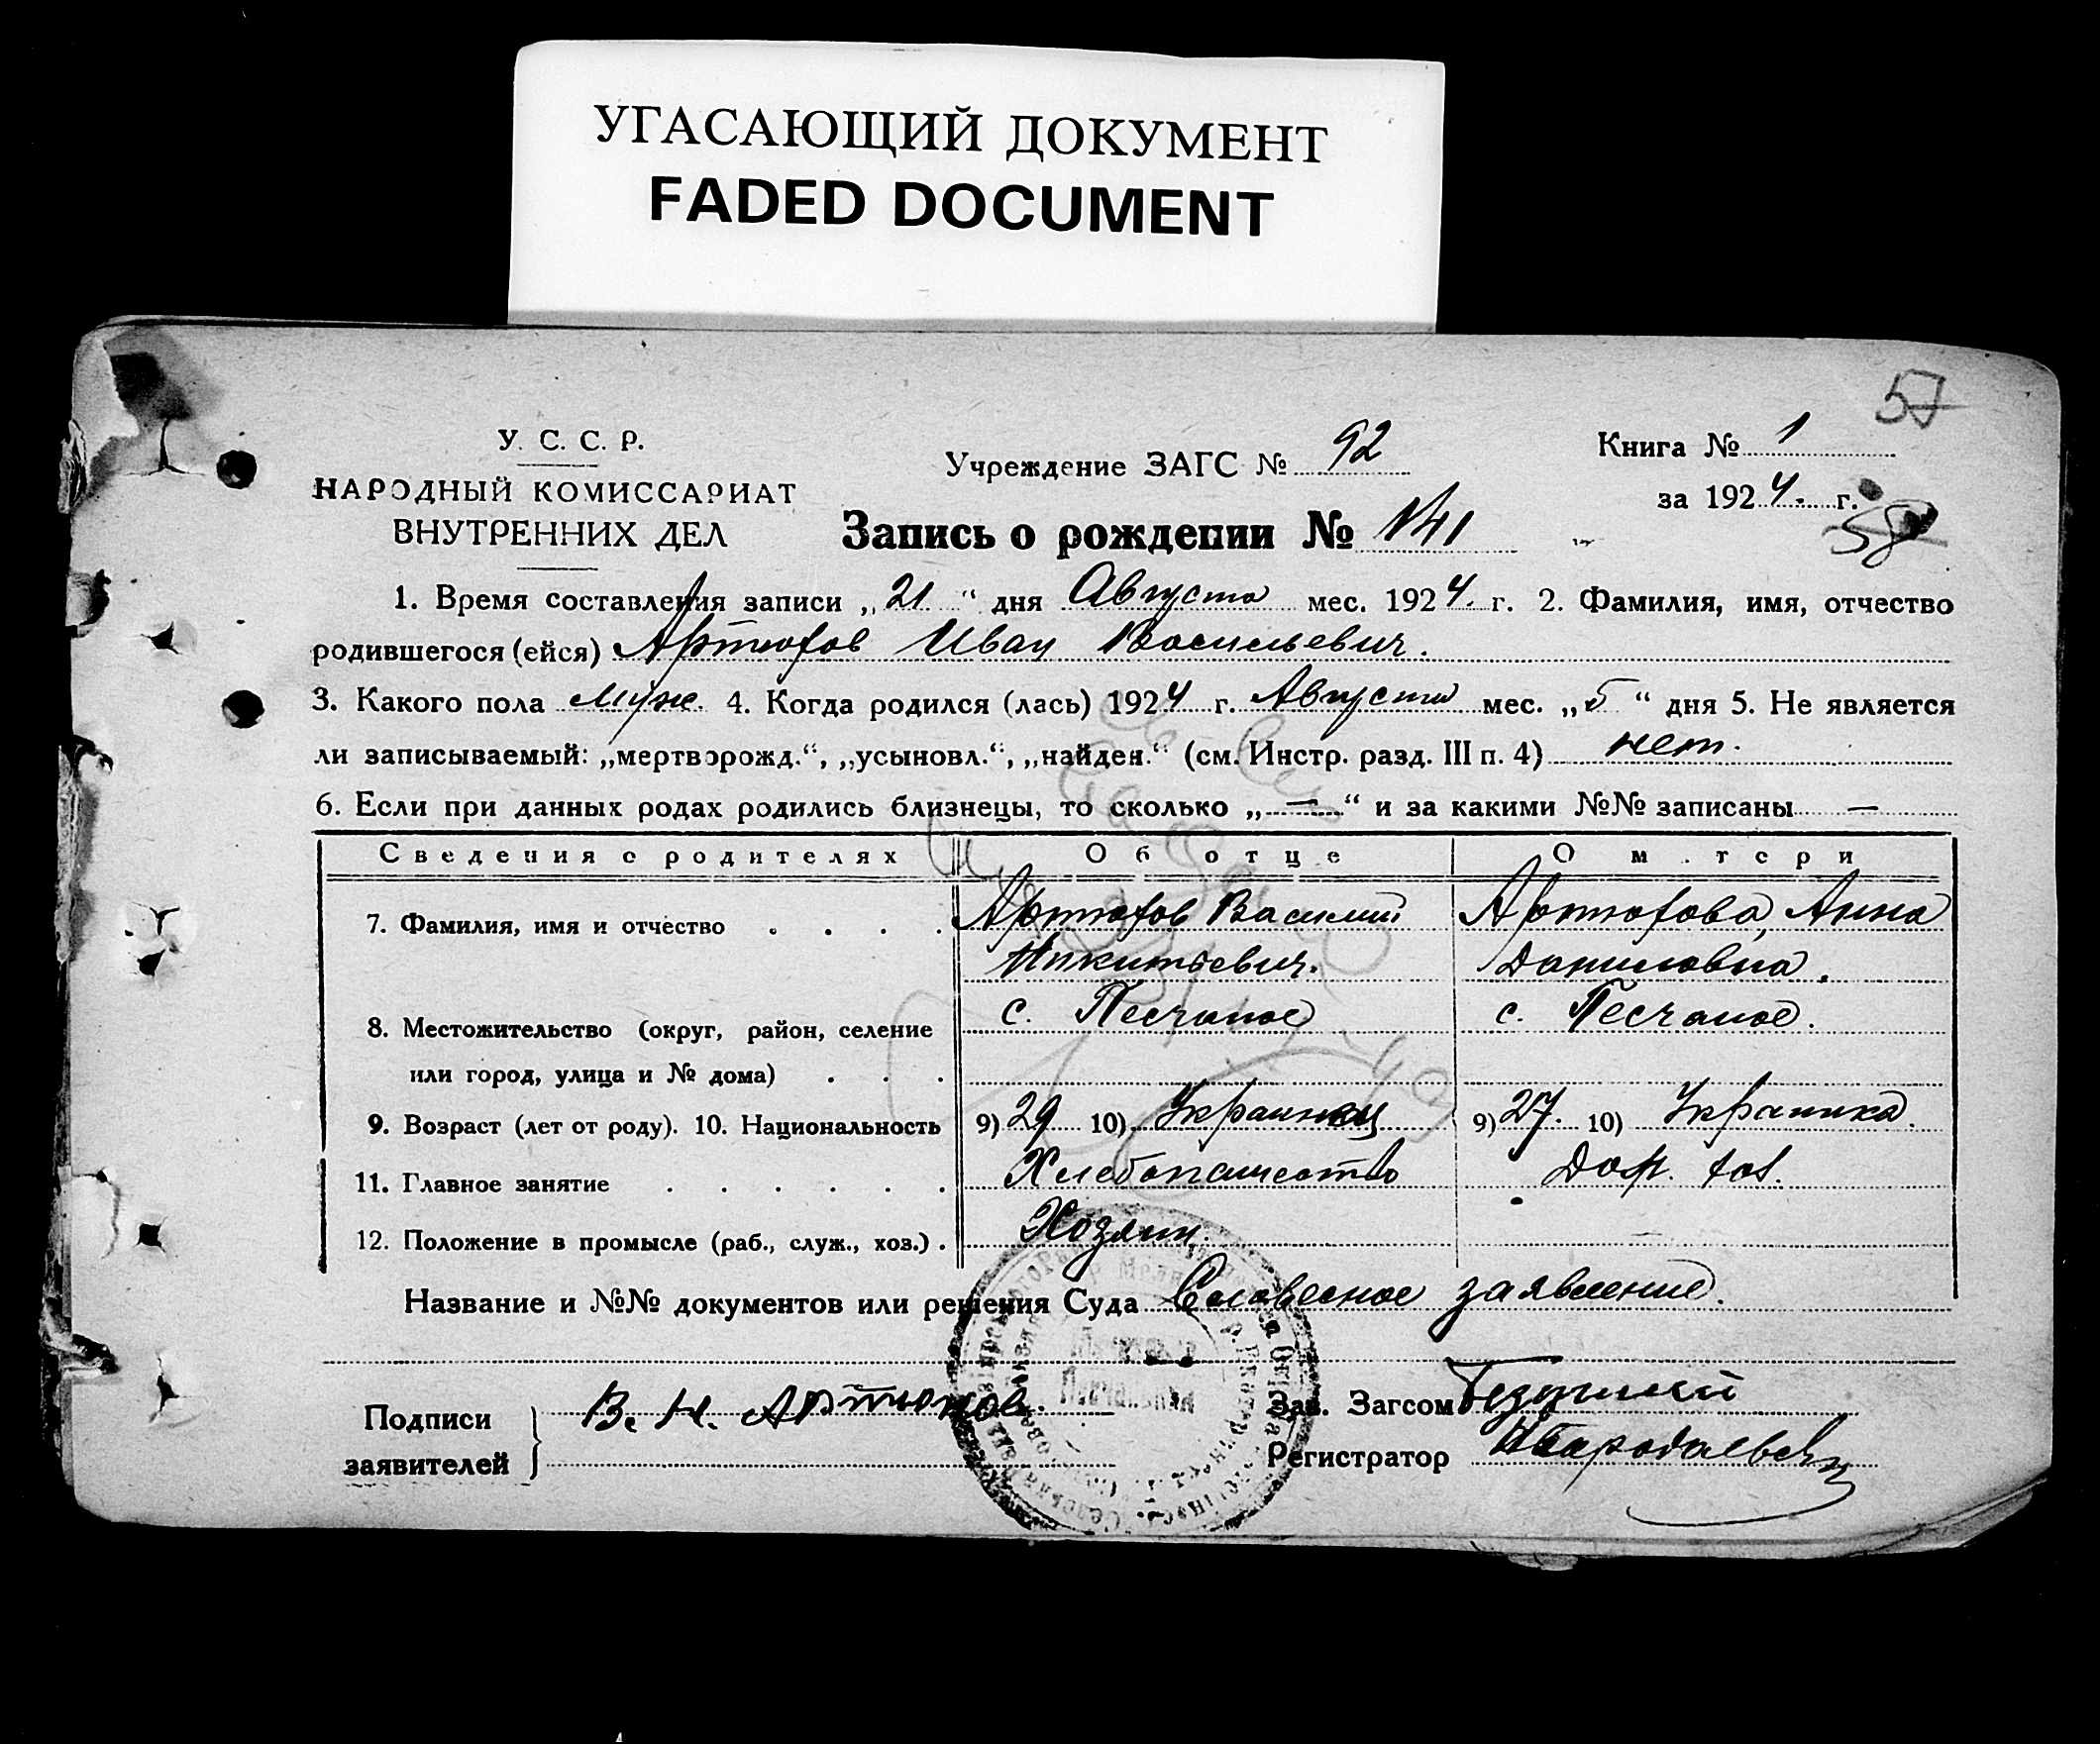 УГАСАЮЩИЙ ДОКУМЕНТ
FADED DOCUMENT
57
У. С. С. Р.
НАРОДНЫЙ КОМИССАРИАТ
ВНУТРЕННИХ ДЕЛ
Учреждение ЗАГС № 92
Книга № 1
за 1924. г.
58
Запись о рождении № 141
1. Время составления записи „21“ дня Августа мес. 1924. г. 2. Фамилия, имя, отчество
родившегося (ейся) Артюхов Иван Васильевич.
3. Какого пола муж. 4. Когда родился (лась) 1924 г. Августа мес. „5“ дня 5. Не является
ли записываемый: „мертворожд.“, „усыновл.“, „найден.“ (см. Инстр. разд. III п. 4) нет.
6. Если при данных родах родились близнецы, то сколько „—“ и за какими №№ записаны —
Сведения о родителях Об отце О м.тери
7. Фамилия, имя и отчество . . . . Артюхов Василий Артюхова, Анна
Никитович. Даниловна.
8. Местожительство (округ, район, селение с. Песчаное с. Песчаное.
или город, улица и № дома) . . .
9. Возраст (лет от роду). 10. Национальность 9) 29 10) Украинец 9) 27. 10) Украинка.
11. Главное занятие . . . . . . Хлебопашество Дом. хоз.
12. Положение в промысле (раб., служ., хоз.) . Хозяин. —
Название и №№ документов или решения Суда Словесное заявление.
Подписи В. Н. Артюхов. Зав. Загсом
заявителей Регистратор